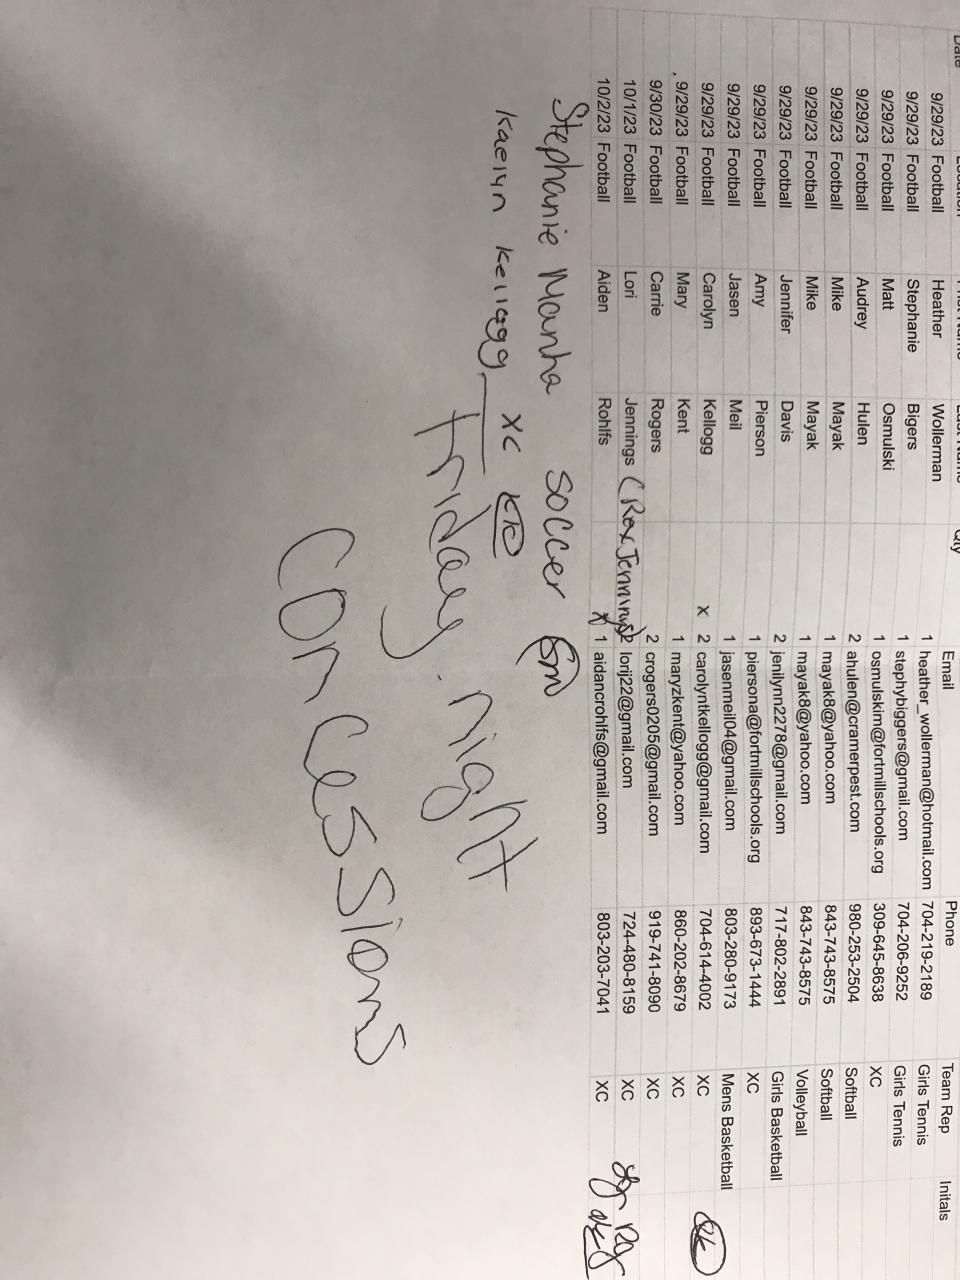 Date Location First Name Last Name Qty Email Phone Team Rep Initals
9/29/23 Football Heather Wollerman 1 heather_wollerman@hotmail.com 704-219-2189 Girls Tennis
9/29/23 Football Stephanie Bigers 1 stephybiggers@gmail.com 704-206-9252 Girls Tennis
9/29/23 Football Matt Osmulski 1 osmulskim@fortmillschools.org 309-645-8638 XC
9/29/23 Football Audrey Hulen 2 ahulen@cramerpest.com 980-253-2504 Softball
9/29/23 Football Mike Mayak 1 mayak8@yahoo.com 843-743-8575 Softball
9/29/23 Football Mike Mayak 1 mayak8@yahoo.com 843-743-8575 Volleyball
9/29/23 Football Jennifer Davis 2 jenilynn2278@gmail.com 717-802-2891 Girls Basketball
9/29/23 Football Amy Pierson 1 piersona@fortmillschools.org 893-673-1444 XC
9/29/23 Football Jasen Meil 1 jasenmeil04@gmail.com 803-280-9173 Mens Basketball
9/29/23 Football Carolyn Kellogg x 2 carolyntkellogg@gmail.com 704-614-4002 XC
9/29/23 Football Mary Kent 1 maryzkent@yahoo.com 860-202-8679 XC
9/30/23 Football Carrie Rogers 2 crogers0205@gmail.com 919-741-8090 XC
10/1/23 Football Lori Jennings (Rex Jennings) 2 lorij22@gmail.com 724-480-8159 XC
10/2/23 Football Aiden Rohlfs x 1 aidancrohlfs@gmail.com 803-203-7041 XC
Stephanie Manha soccer Sm
Kaelyn Kellogg XC
Friday night
Concessions